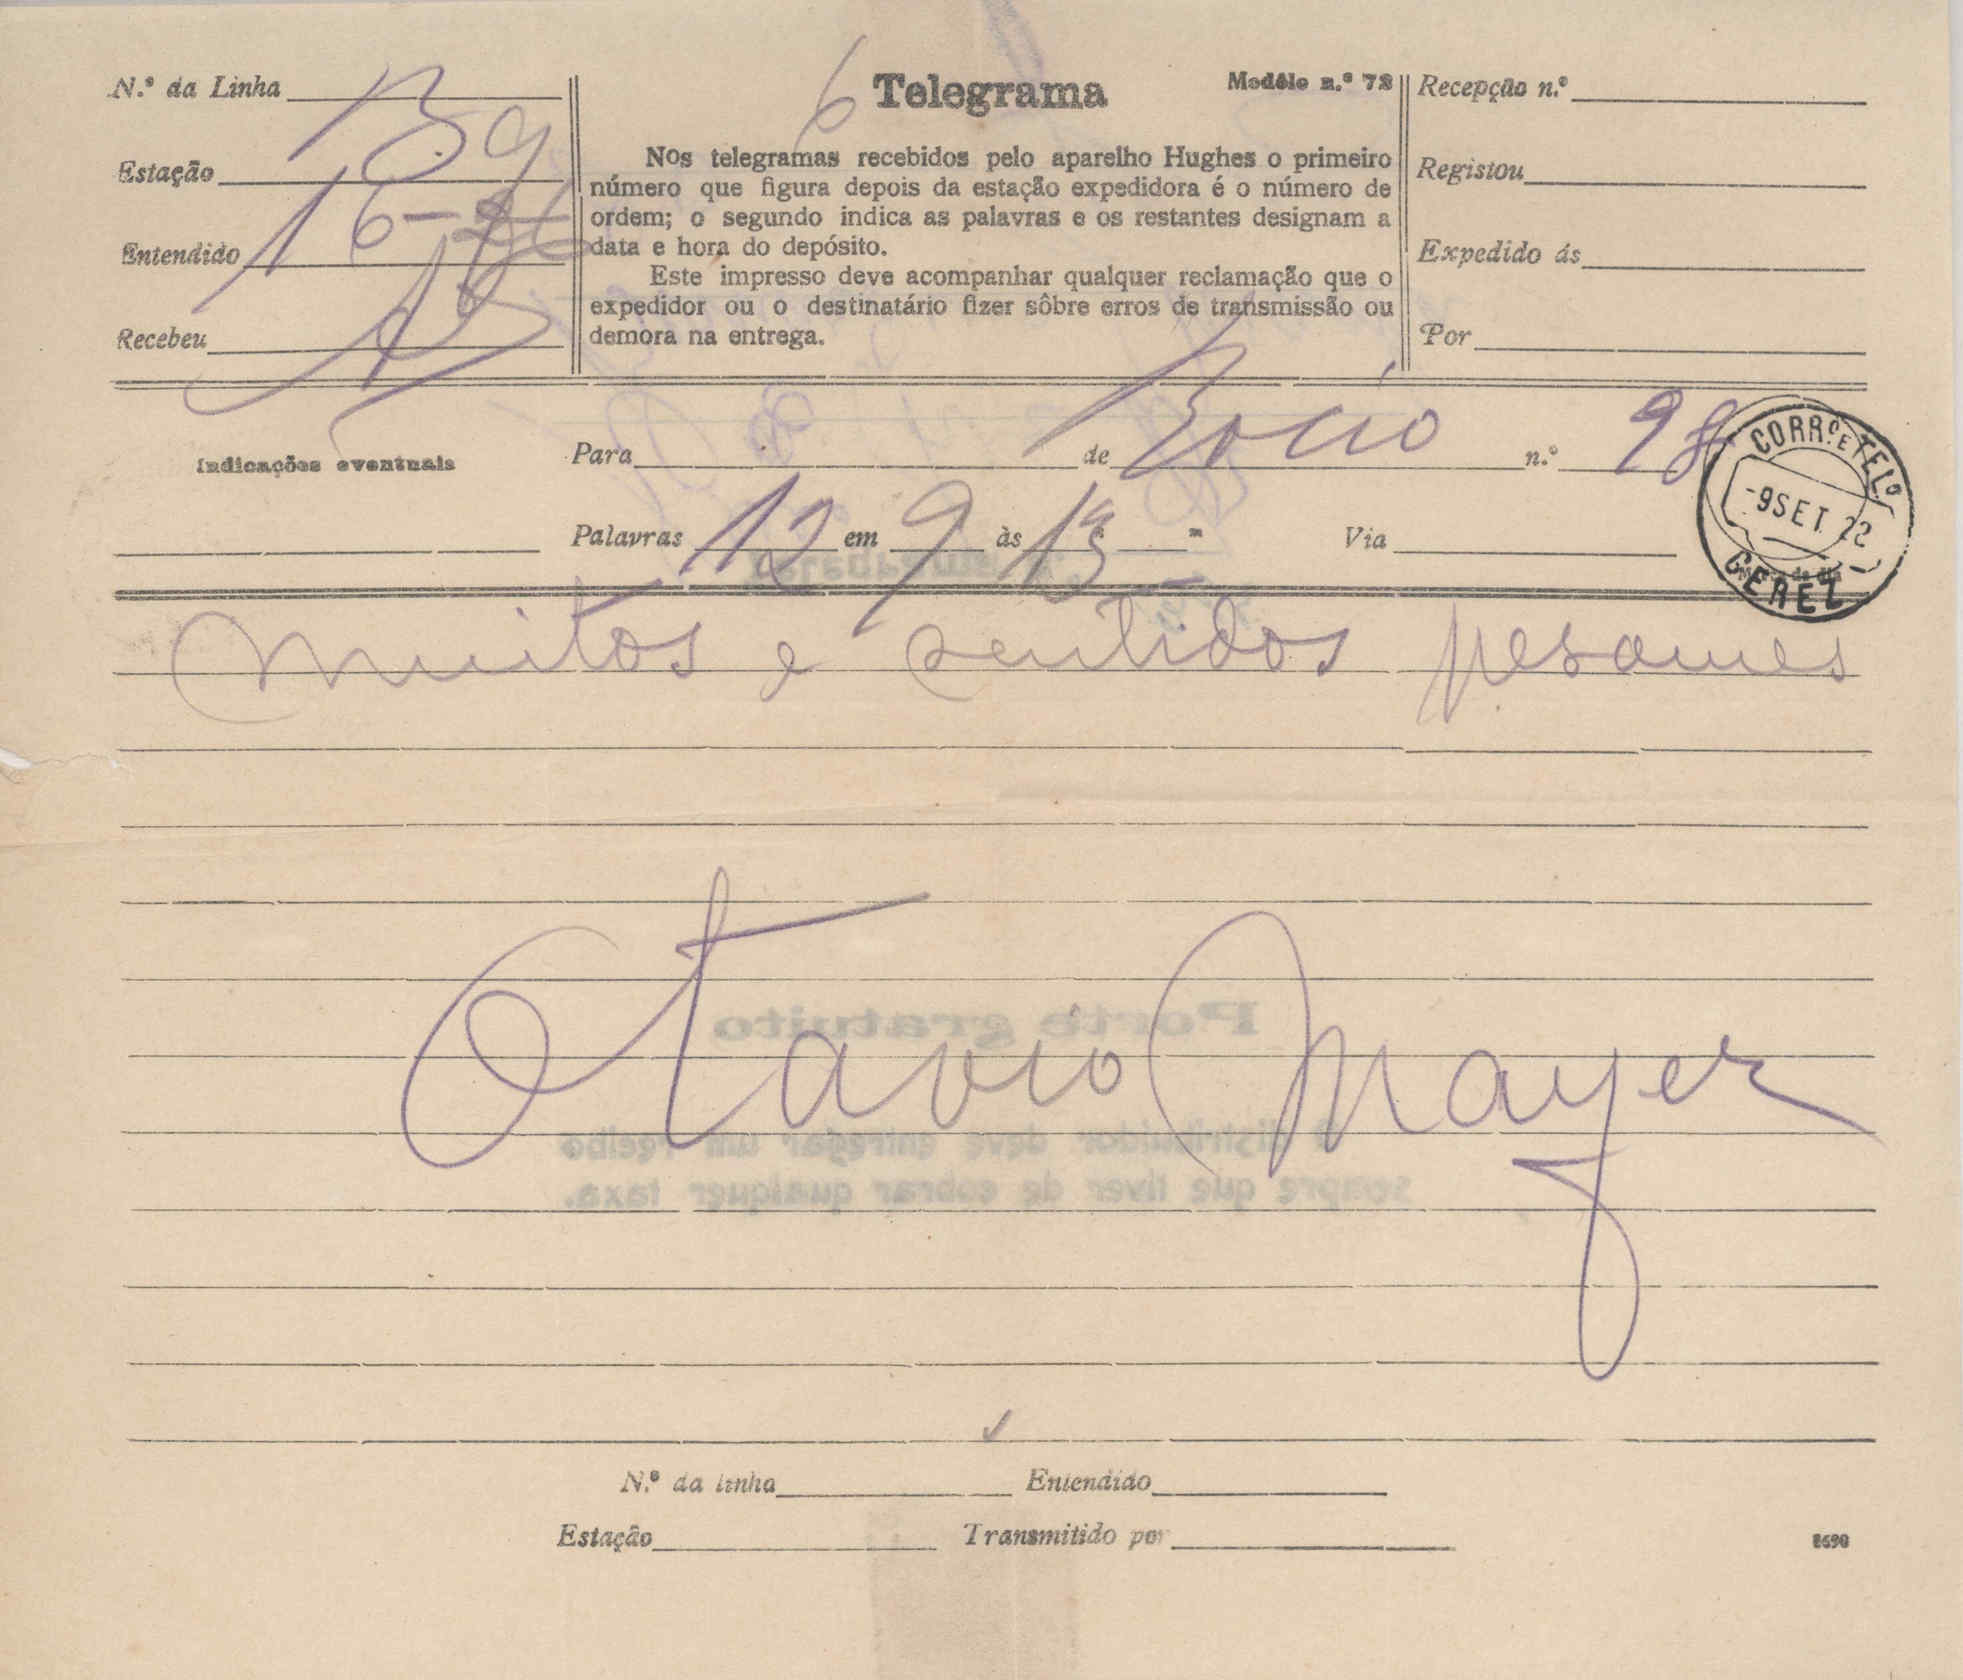 N.º da Linha
Bg
Estação
16-
Entendido
Recebeu
6
Telegrama
Modêlo n.º 78
Nos telegramas recebidos pelo aparelho Hughes o primeiro
número que figura depois da estação expedidora é o número de
ordem; o segundo indica as palavras e os restantes designam a
data e hora do depósito.
Este impresso deve acompanhar qualquer reclamação que o
expedidor ou o destinatário fizer sôbre erros de transmissão ou
demora na entrega.
Recepção n.º
Registou
Expedido ás
Por
Indicações eventuais
Para de Rocio n.º 98
Palavras 12 em 9 às 13 Via
CORR.º E TEL.º
-9 SET 22
GEREZ
Muitos e sentidos pesames
Otavio Mayer
Porte gratuito
O distribuidor deve entregar um recibo
sempre que tiver de cobrar qualquer taxa.
N.º da linha Entendido
Estação Transmitido por